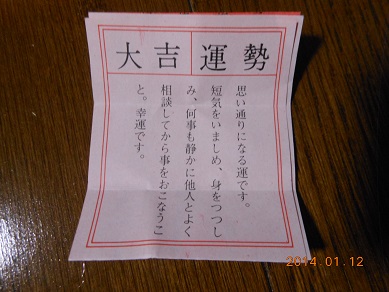 大吉運勢
思い通りになる運です。
短気をいましめ、身をつつし
み、何事も静かに他人とよく
相談してから事をおこなうこ
と。幸運です。
2014.01.12